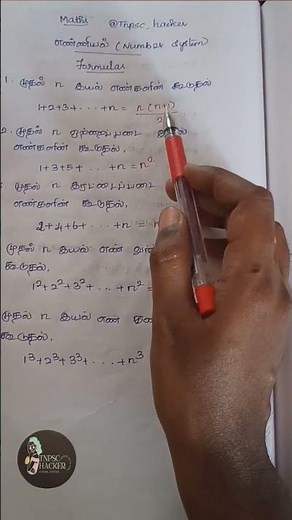 Maths @Tnpsc_hacker
எண்ணியல் (Number System)
Formulas
1. முதல் n இயல் எண்களின் கூடுதல்
1+2+3+ . . . +n = n (n+1)
2
2. முதல் n ஒற்றைப்படை இயல்
எண்களின் கூடுதல்,
1+3+5+ . . . +n = n²
முதல் n இரட்டைப்படை
எண்களின் கூடுதல்,
2+4+6+ . . . +n = n
முதல் n இயல் எண்
கூடுதல்,
1²+2²+3²+ . . . +n² =
முதல் n இயல் எண்
கூடுதல்,
1³+2³+3³+ . . . +n³
TNPSC
HACKER